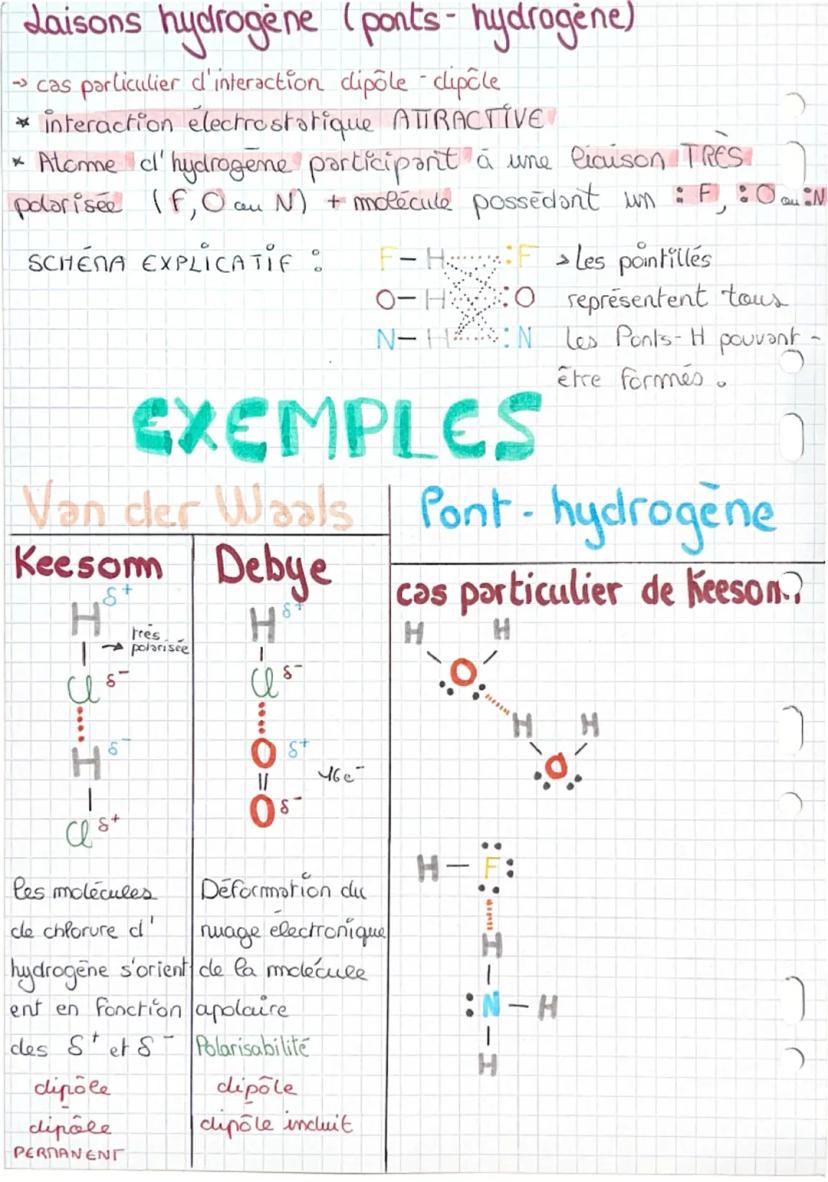 Liaisons hydrogène (ponts-hydrogène)
→ cas particulier d'interaction dipôle-dipôle
* interaction électrostatique ATTRACTIVE
* Atome d'hydrogène participant à une liaison TRÈS
polarisée (F, O ou N) + molécule possédant un :F, :O ou :N
SCHÉMA EXPLICATIF :
F-H :F → Les pointillés
O-H :O représentent tous
N-H :N les Ponts-H pouvant-
être formés.
EXEMPLES
Van der Waals
Pont-hydrogène
Keesom
Debye
cas particulier de Keesom
H δ+
très
polarisée
Cl δ-
H δ-
Cl δ+
H δ+
Cl δ-
O δ+
16e-
O δ-
H H
O
H H
O
H-F
H
:N-H
H
les molécules
de chlorure d'
hydrogène s'orient
ent en fonction
des δ+ et δ-
dipôle
-
dipôle
PERMANENT
Déformation du
nuage électronique
de la molécule
apolaire
Polarisabilité
dipôle
-
dipôle induit